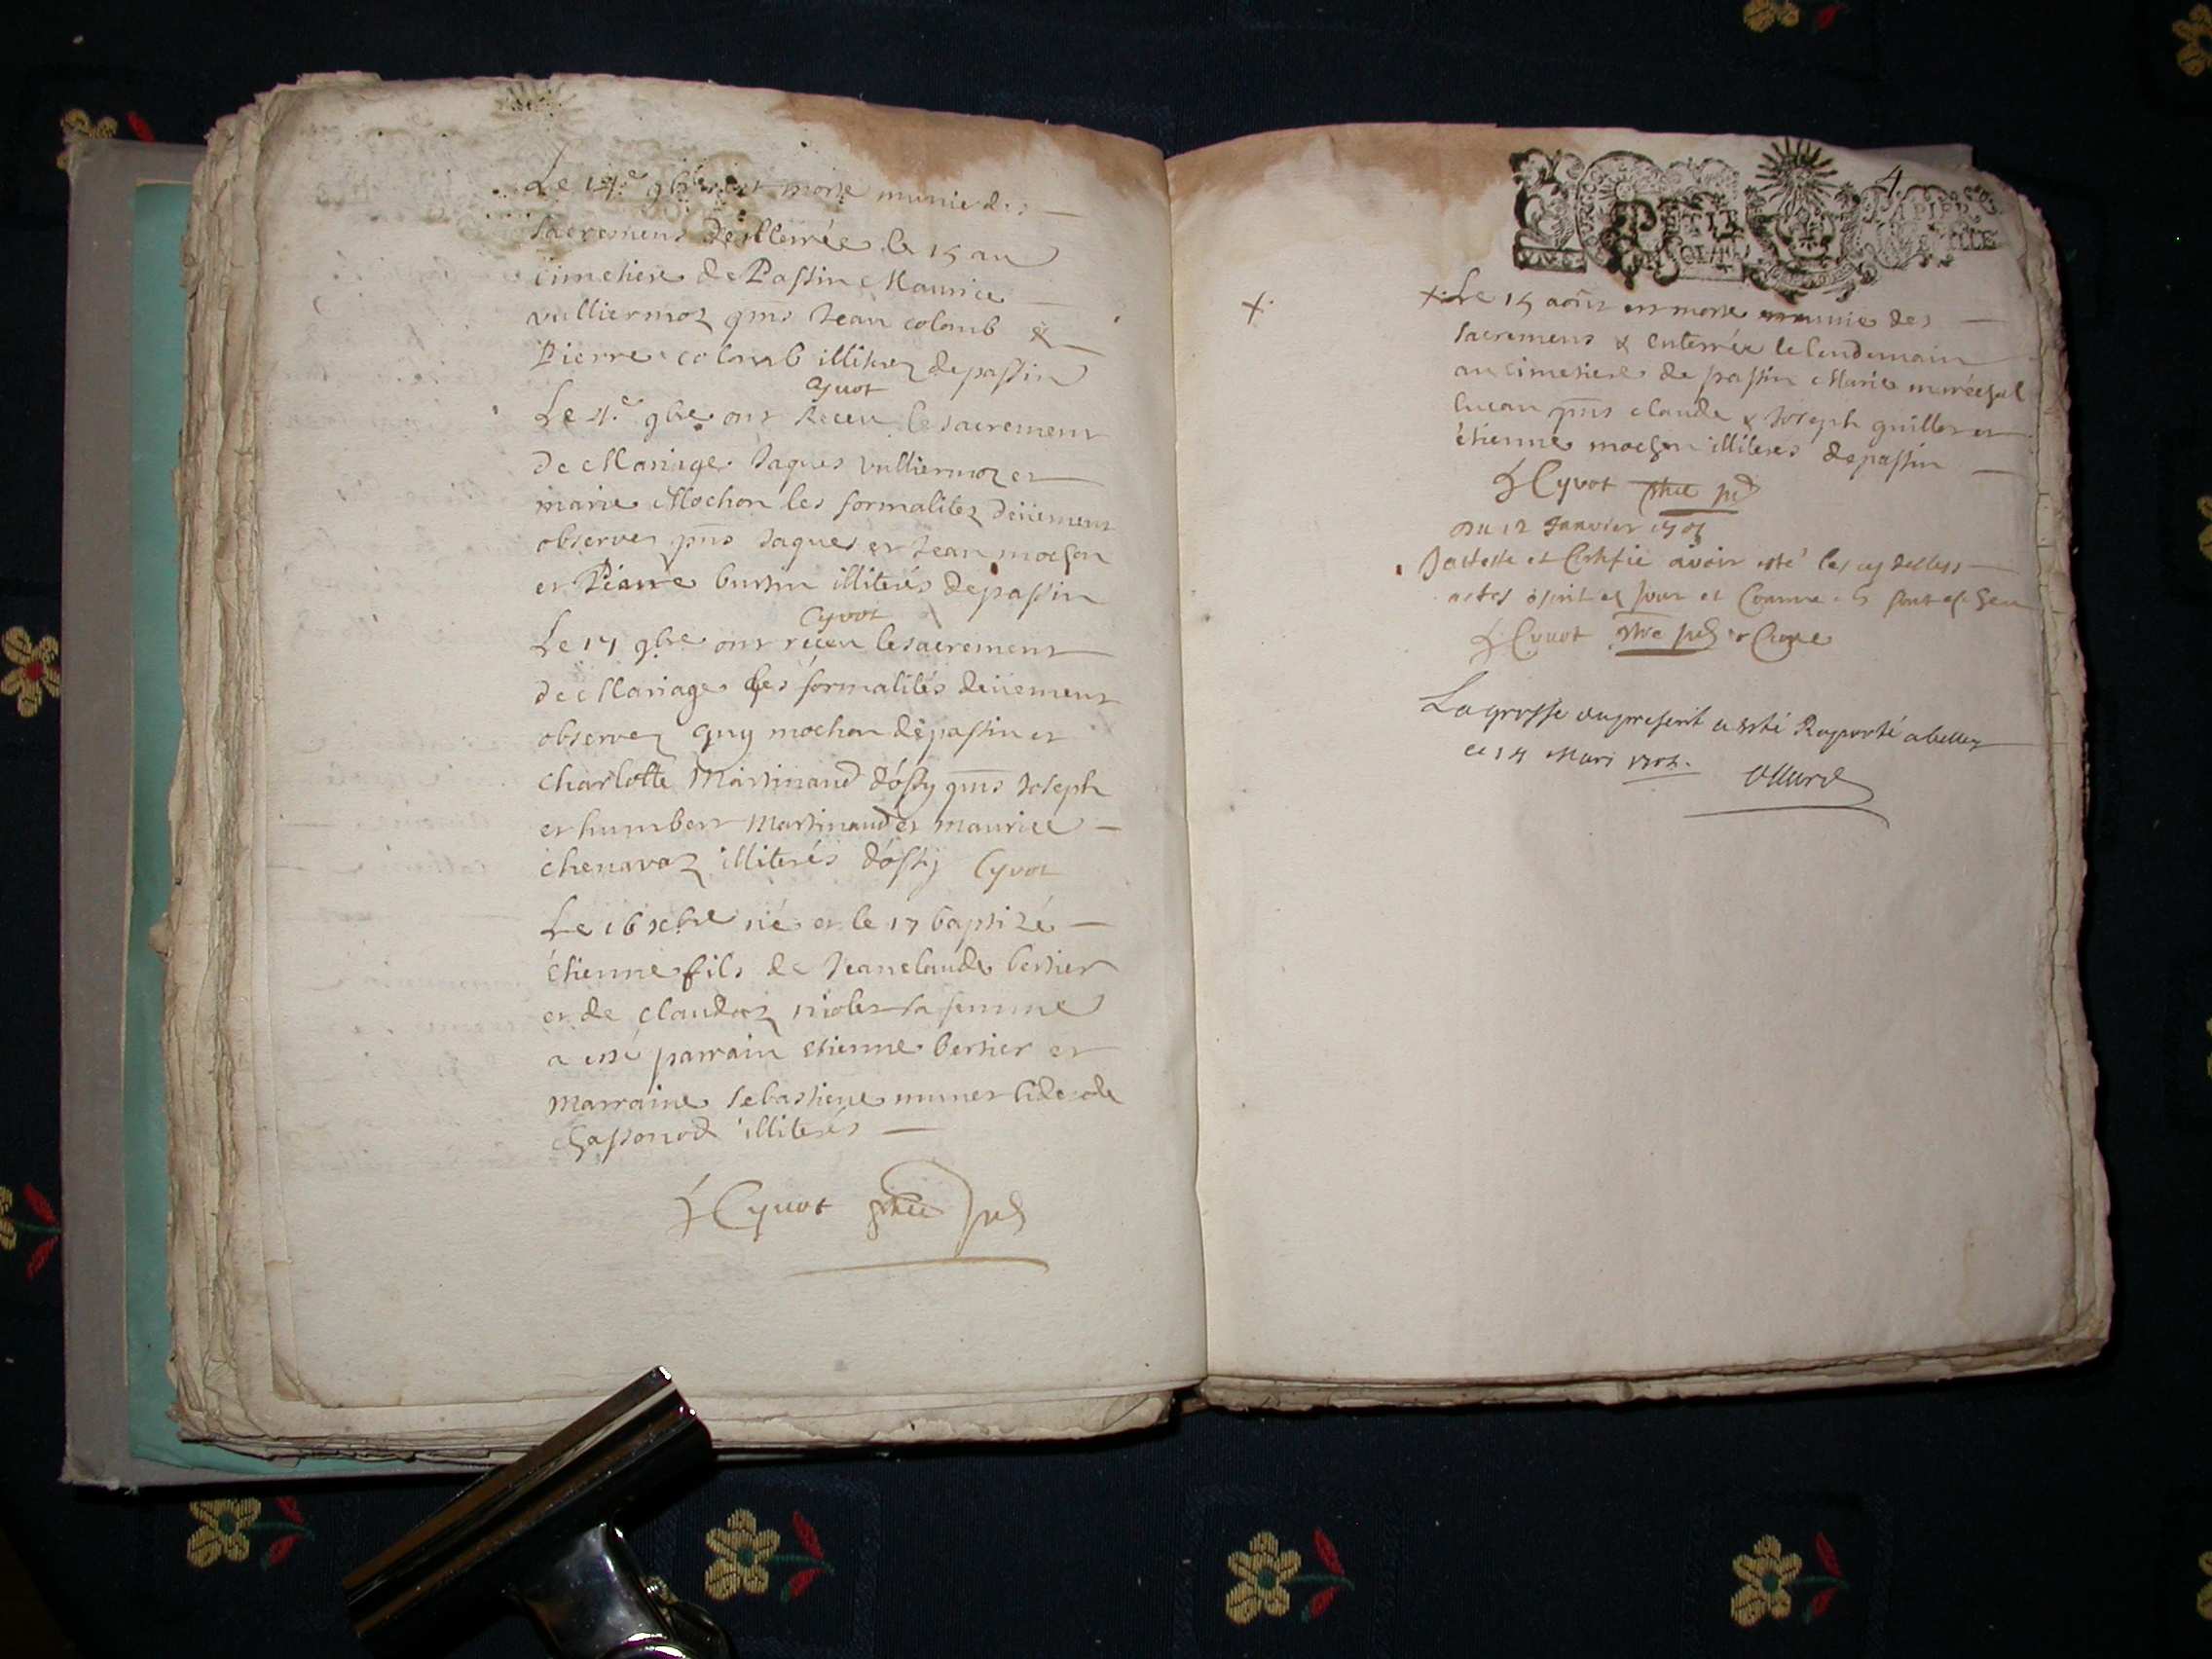 Le 14.e 9bre est morte munie des
sacremens & enterrée le 15 au
cimetiere de Passin Maurice
vulliermoz pns Jean colomb &
Pierre colomb illiterez de passin
Cyvot
Le 4.e 9bre ont receu le sacrement
de Mariage Jaques vulliermoz et
marie Mochon les formalitez deüement
observez pns Jaques et Jean mochon
et Pierre burtin illiterés de passin
Cyvot
Le 17 9bre ont receu le sacrement
de Mariage les formalités deüement
observez Guy mochon de passin et
Charlotte Martinand d'ossy pns Joseph
et humbert Martinand et maurice
chenavaz illiterés d'ossy Cyvot
Le 16 xbre né et le 17 baptizé
étienne fils de Jeanclaude bertier
et de Claudaz niolet sa femme
a esté parrain etienne bertier et
Marraine sebastiene munet
Chassonod illiterés
Cyvot ptre
4
PETIT PAPIER
+ +. Le 15 août est morte munie des
sacremens & enterrée le lendemain
au cimetiere de passin Marie maréchal
pns claude & Joseph guillot et
étienne mochon illiteres de passin
Cyvot ptre
Du 12 Janvier
J'atteste et Certifie avoir esté les cy dessus
actes et jour et Comme
Cyvot ptre & Curé
La grosse du present a esté Raporté a belley
ce 14 Mars 1702.